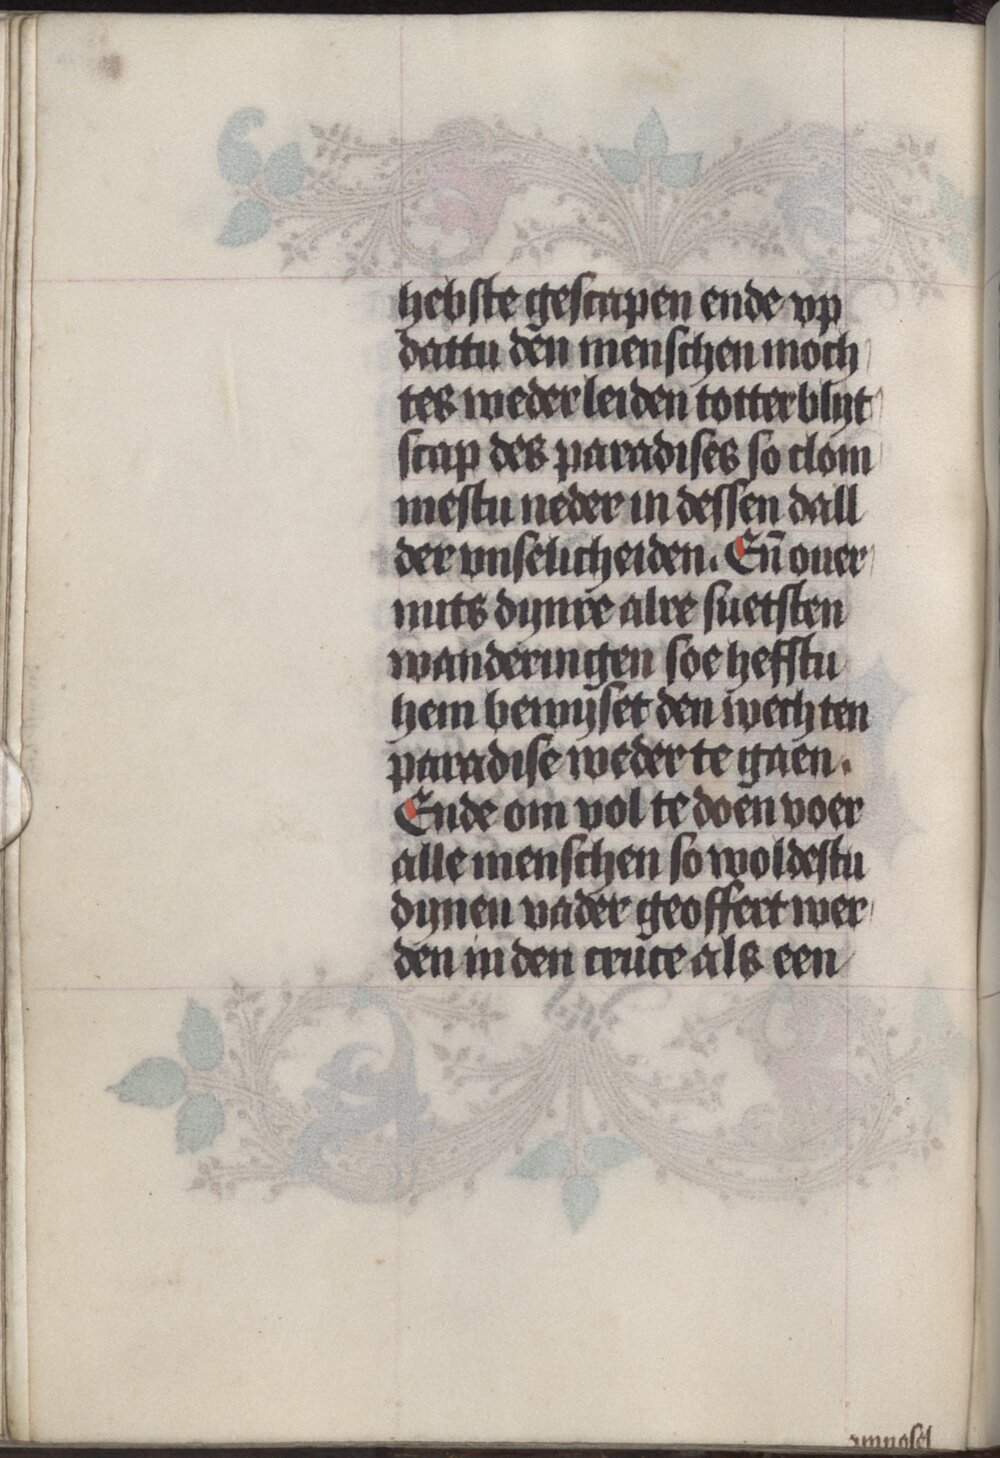 hebste gescapen ende vp
dattu den menschen moch
tes weder leiden totter blijt
scap des paradises so clom
mestu neder in dessen dall
der vnselicheiden. Eñ ouer
mits dynre alre suetsten
wanderingen soe hefstu
hem bewijset den wech ten
paradise weder te gaen.
Ende om vol te doen voer
alle menschen so woldestu
dynen vader geoffert wer
den in den cruce als een